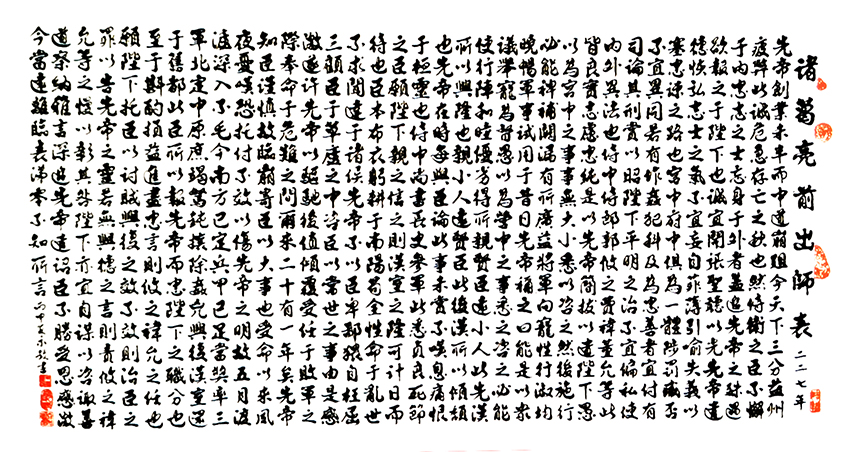 诸葛亮前出師表 二二七年
先帝創業未半而中道崩殂今天下三分益州
疲弊此誠危急存亡之秋也然侍衛之臣不懈
于内忠志之士忘身于外者蓋追先帝之殊遇
欲報之于陛下也誠宜開張聖聽以光先帝遺
德恢弘志士之氣不宜妄自菲薄引喻失義以
塞忠諫之路也宮中府中俱為一體陟罰臧否
不宜異同若有作姦犯科及為忠善者宜付有
司論其刑賞以昭陛下平明之治不宜偏私使
内外異法也侍中侍郎郭攸之費禕董允等此
皆良實志慮忠純是以先帝簡拔以遺陛下愚
以為宮中之事事無大小悉以咨之然後施行
必能裨補闕漏有所廣益將軍向寵性行淑均
曉暢軍事試用于昔日先帝稱之曰能是以衆
議舉寵為督愚以為營中之事悉以咨之必能
使行陣和睦優劣得所親賢臣遠小人此先漢
所以興隆也親小人遠賢臣此後漢所以傾頹
也先帝在時每與臣論此事未嘗不嘆息痛恨
于桓靈也侍中尚書長史參軍此悉貞良死節
之臣願陛下親之信之則漢室之隆可計日而
待也臣本布衣躬耕于南陽苟全性命于亂世
不求聞達于諸侯先帝不以臣卑鄙猥自枉屈
三顧臣于草廬之中咨臣以當世之事由是感
激遂許先帝以驅馳後值傾覆受任于敗軍之
際奉命于危難之間爾来二十有一年矣先帝
知臣謹慎故臨崩寄臣以大事也受命以来夙
夜憂嘆恐托付不效以傷先帝之明故五月渡
瀘深入不毛今南方已定兵甲已足當奬率三
軍北定中原庶竭駑鈍攘除姦凶興復漢室還
于舊都此臣所以報先帝而忠陛下之職分也
至于斟酌損益進盡忠言則攸之禕允之任也
願陛下托臣以討賊興復之效不效則治臣之
罪以告先帝之靈若無興德之言則責攸之禕
允等之慢以彰其咎陛下亦宜自謀以咨諏善
道察納雅言深追先帝遺詔臣不勝受恩感激
今當遠離臨表涕零不知所言